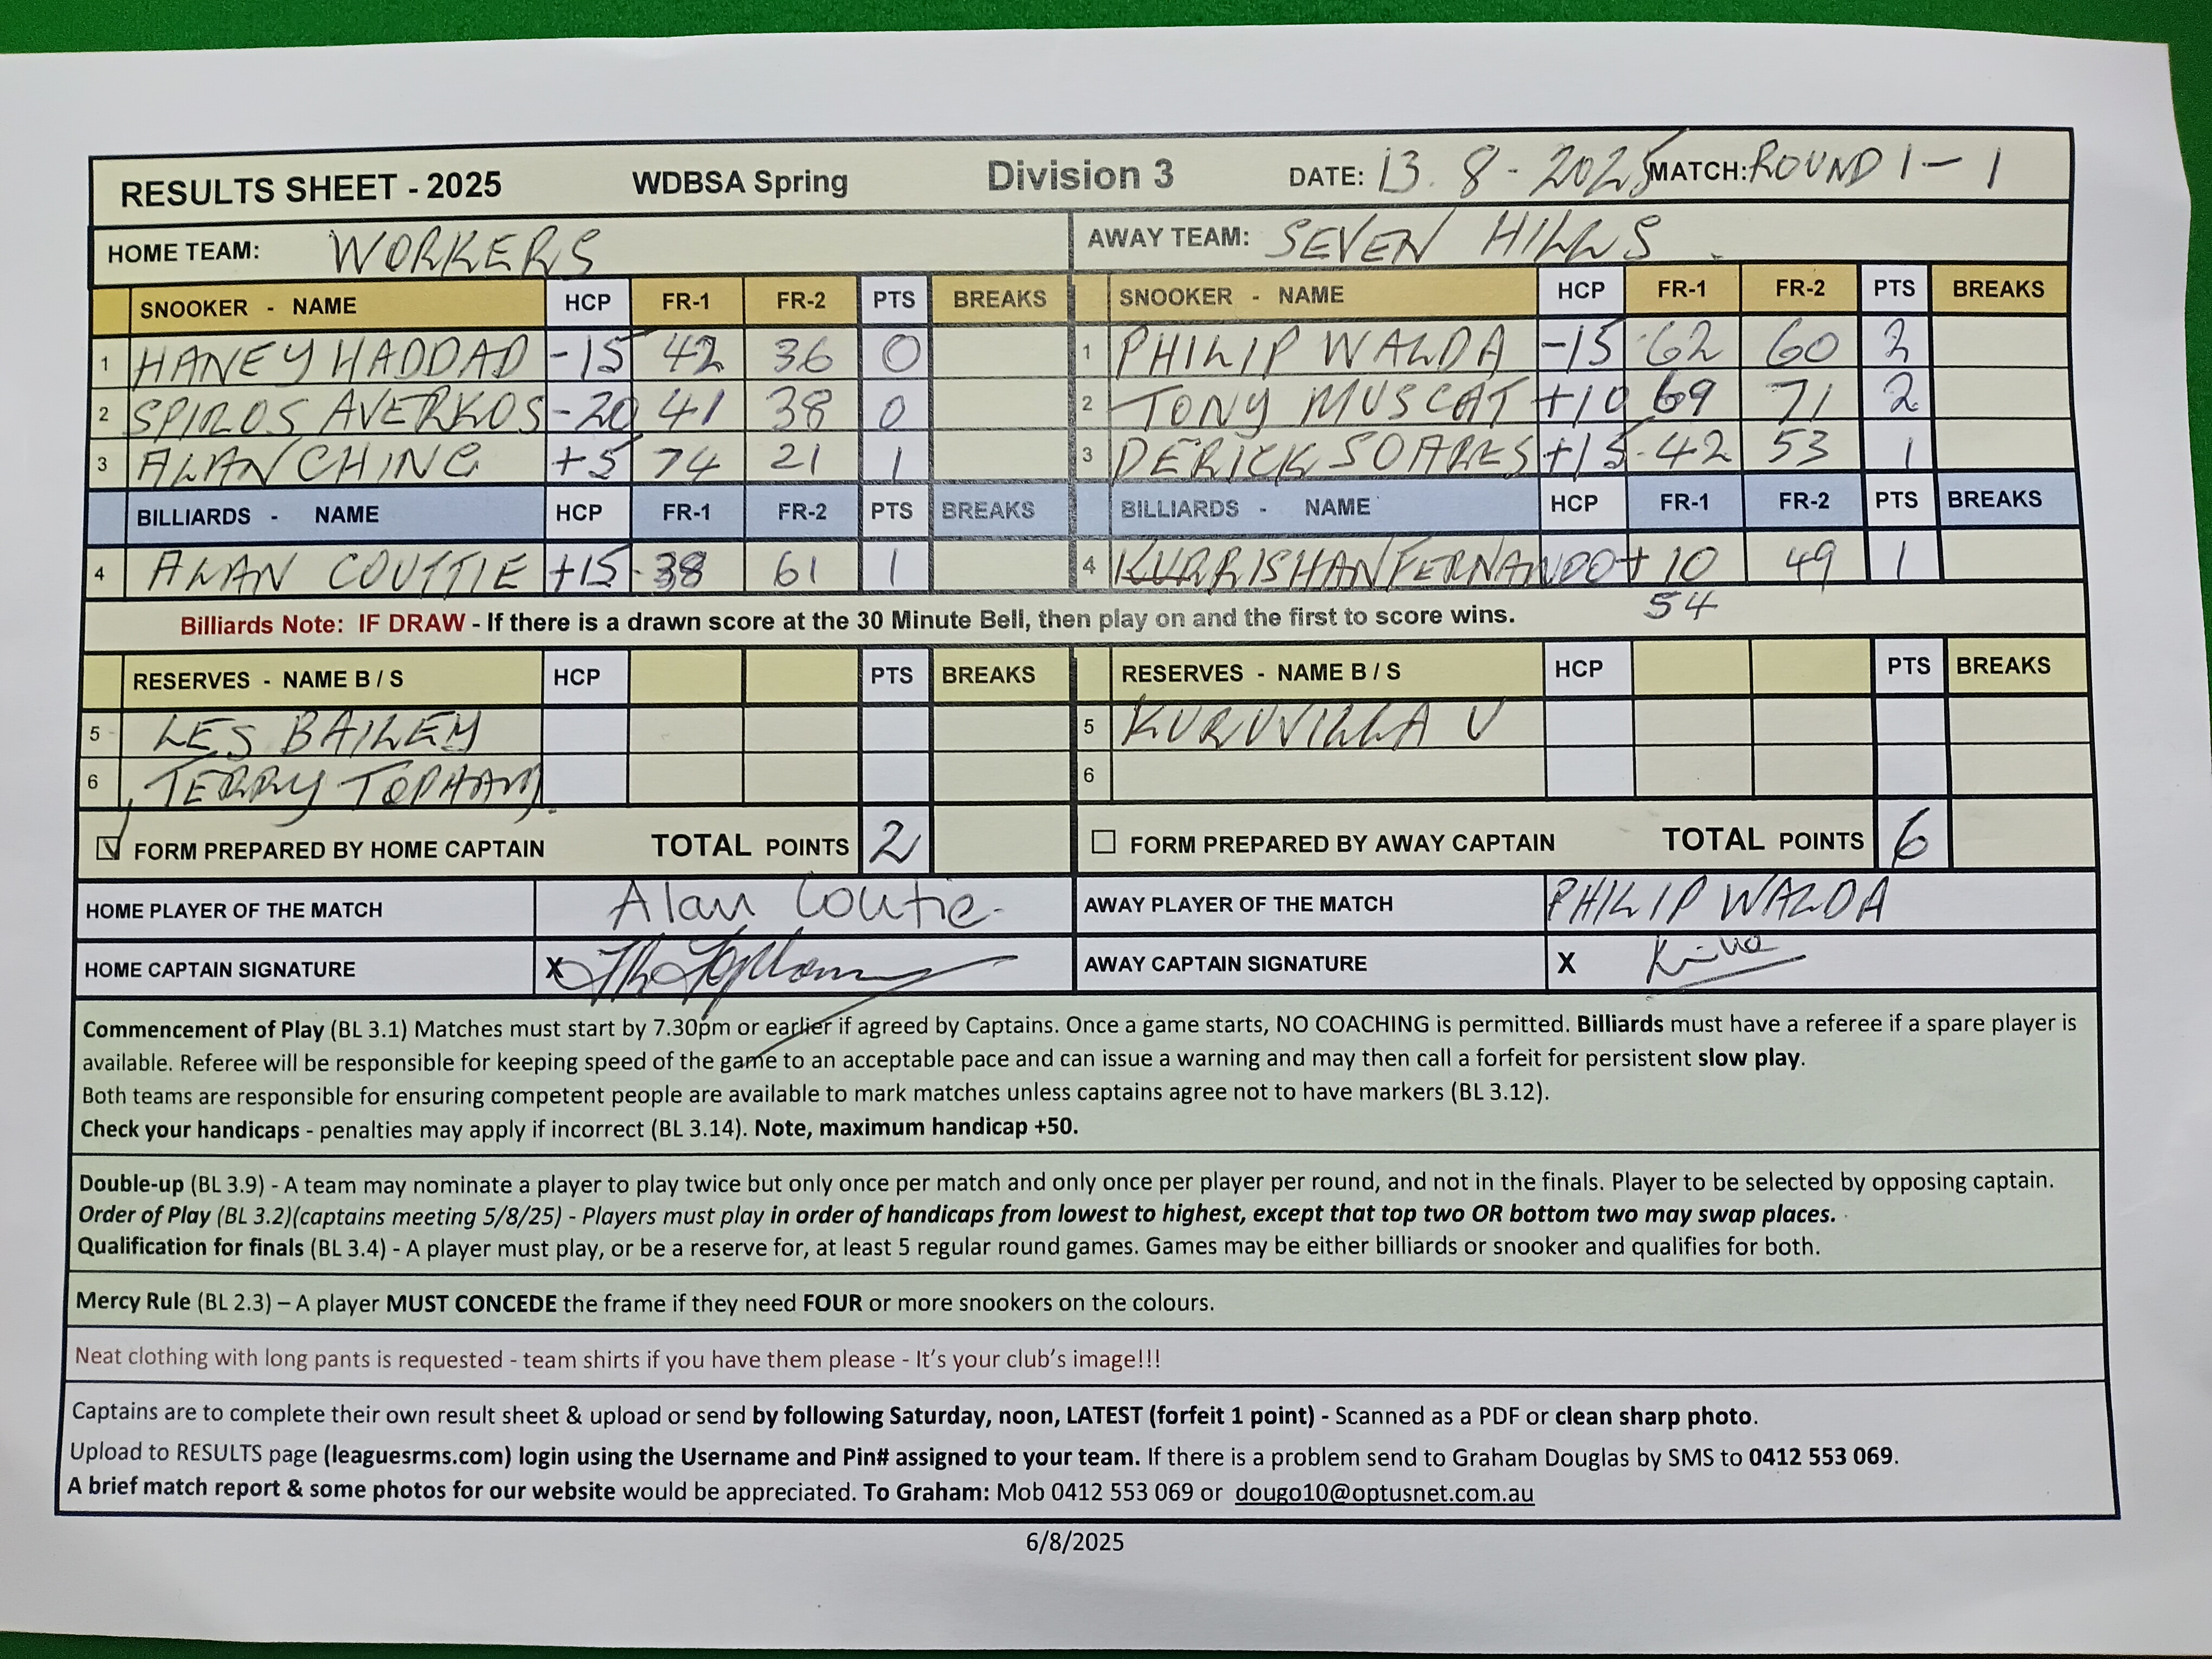 RESULTS SHEET - 2025 WDBSA Spring Division 3 DATE: 13. 8 - 2025 MATCH: ROUND 1 - 1
HOME TEAM: WORKERS AWAY TEAM: SEVEN HILLS
SNOOKER - NAME HCP FR-1 FR-2 PTS BREAKS SNOOKER - NAME HCP FR-1 FR-2 PTS BREAKS
1 HANEY HADDAD -15 42 36 0 1 PHILIP WALDA -15 62 60 2
2 SPIROS AVERKOS -20 41 38 0 2 TONY MUSCAT +10 69 71 2
3 ALAN CHING +5 74 21 1 3 DERICK SOARES +15 42 53 1
BILLIARDS - NAME HCP FR-1 FR-2 PTS BREAKS BILLIARDS - NAME HCP FR-1 FR-2 PTS BREAKS
4 ALAN COUTTIE +15 38 61 1 4 KURRISHAN FERNANDO +10 49 1
54
Billiards Note: IF DRAW - If there is a drawn score at the 30 Minute Bell, then play on and the first to score wins.
RESERVES - NAME B / S HCP PTS BREAKS RESERVES - NAME B / S HCP PTS BREAKS
5 LES BAILEY 5 KURUVILLA V
6 TERRY TOPHAM 6
FORM PREPARED BY HOME CAPTAIN TOTAL POINTS 2 FORM PREPARED BY AWAY CAPTAIN TOTAL POINTS 6
HOME PLAYER OF THE MATCH Alan Coutie AWAY PLAYER OF THE MATCH PHILIP WALDA
HOME CAPTAIN SIGNATURE X AWAY CAPTAIN SIGNATURE X
Commencement of Play (BL 3.1) Matches must start by 7.30pm or earlier if agreed by Captains. Once a game starts, NO COACHING is permitted. Billiards must have a referee if a spare player is
available. Referee will be responsible for keeping speed of the game to an acceptable pace and can issue a warning and may then call a forfeit for persistent slow play.
Both teams are responsible for ensuring competent people are available to mark matches unless captains agree not to have markers (BL 3.12).
Check your handicaps - penalties may apply if incorrect (BL 3.14). Note, maximum handicap +50.
Double-up (BL 3.9) - A team may nominate a player to play twice but only once per match and only once per player per round, and not in the finals. Player to be selected by opposing captain.
Order of Play (BL 3.2)(captains meeting 5/8/25) - Players must play in order of handicaps from lowest to highest, except that top two OR bottom two may swap places.
Qualification for finals (BL 3.4) - A player must play, or be a reserve for, at least 5 regular round games. Games may be either billiards or snooker and qualifies for both.
Mercy Rule (BL 2.3) – A player MUST CONCEDE the frame if they need FOUR or more snookers on the colours.
Neat clothing with long pants is requested - team shirts if you have them please - It's your club's image!!!
Captains are to complete their own result sheet & upload or send by following Saturday, noon, LATEST (forfeit 1 point) - Scanned as a PDF or clean sharp photo.
Upload to RESULTS page (leaguesrms.com) login using the Username and Pin# assigned to your team. If there is a problem send to Graham Douglas by SMS to 0412 553 069.
A brief match report & some photos for our website would be appreciated. To Graham: Mob 0412 553 069 or dougo10@optusnet.com.au
6/8/2025